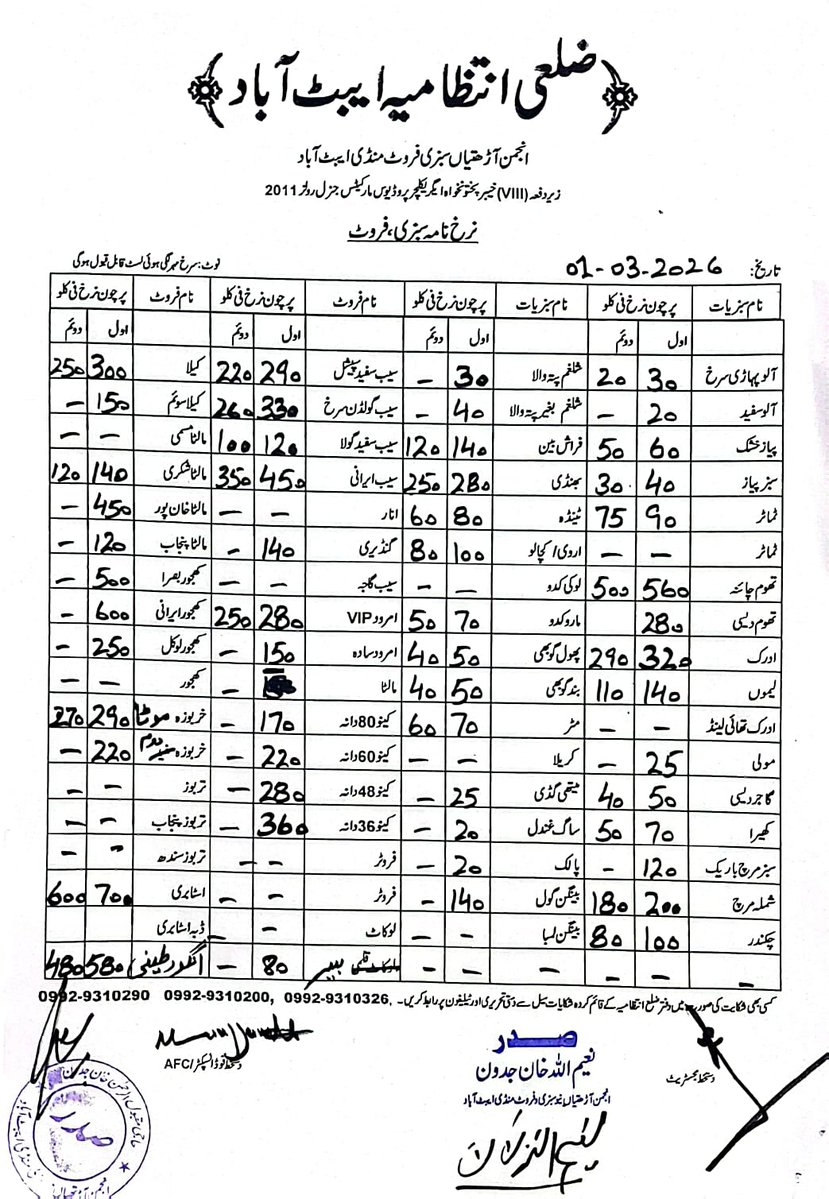 ضلعی انتظامیہ ایبٹ آباد
انجمن آڑھتیاں سبزی فروٹ منڈی ایبٹ آباد
زیر دفعہ (VIII) خیبر پختونخواہ ایگریکلچر پروڈیوس مارکیٹس جنرل رولز 2011
نرخ نامہ سبزی، فروٹ
تاریخ: 01-03-2026 نوٹ: سرخ مہر لگی ہوئی لسٹ قابل قبول ہوگی
نام سبزیات پرچون نرخ فی کلو نام سبزیات پرچون نرخ فی کلو نام فروٹ پرچون نرخ فی کلو نام فروٹ پرچون نرخ فی کلو
اول دوئم اول دوئم اول دوئم اول دوئم
آلو پہاڑی سرخ 30 20 شلغم پتہ والا 30 - سیب سفید سپیشل 290 220 کیلا 300 250
آلو سفید 20 - شلغم بغیر پتہ والا 40 - سیب گولڈن سرخ 330 260 کیلا سوئم 150 -
پیاز خشک 60 50 فراش بین 140 120 سیب سفید گولا 120 100 مالٹا مسمی - -
سبز پیاز 40 30 بھنڈی 280 250 سیب ایرانی 450 350 مالٹا شکری 140 120
ٹماٹر 90 75 ٹینڈہ 80 60 انار - - مالٹا خان پور 450 -
ٹماٹر - - اروی / کچالو 100 80 گنڈیری 140 - مالٹا پنجاب 120 -
تھوم چائنہ 560 500 لوکی کدو - - سیب گاجہ - - کھجور بصرا 500 -
تھوم دیسی 280 مارو کدو 70 50 امرود VIP 280 250 کھجور ایرانی 600 -
ادرک 320 290 پھول گوبھی 50 40 امرود سادہ 150 - کھجور لوکل 250 -
لیموں 140 110 بند گوبھی 50 40 مالٹا - کھجور - -
ادرک تھائی لینڈ - - مٹر 70 60 کینو 80 دانہ 170 - خربوزہ موٹا 290 270
مولی 25 - کریلا - - کینو 60 دانہ 220 - خربوزہ 220 -
گاجر دیسی 50 40 میتھی گڈی 25 - کینو 48 دانہ 280 - تربوز - -
کھیرا 70 50 ساگ غندل 20 - کینو 36 دانہ 360 - تربوز پنجاب - -
سبز مرچ باریک 120 - پالک 20 - فروٹر - - تربوز سندھ - -
شملہ مرچ 200 180 بینگن گول 140 - فروٹر - - اسٹابری 700 600
چکندر 100 80 بینگن لمبا لوکاٹ - - ڈبہ اسٹابری
- - - - - - بیر 80 - انگور 580 480
کسی بھی شکایت کی صورت میں دفتر ضلع انتظامیہ کے قائم کردہ شکایات سیل سے دستی تحریری اور ٹیلیفون پر رابطہ کریں۔ 0992-9310326, 0992-9310200, 0992-9310290
دستخط مجسٹریٹ
صدر
نعیم اللہ خان جدون
انجمن آڑھتیاں سبزی و فروٹ منڈی ایبٹ آباد
دستخط فوڈ انسپکٹر/AFC
صدر